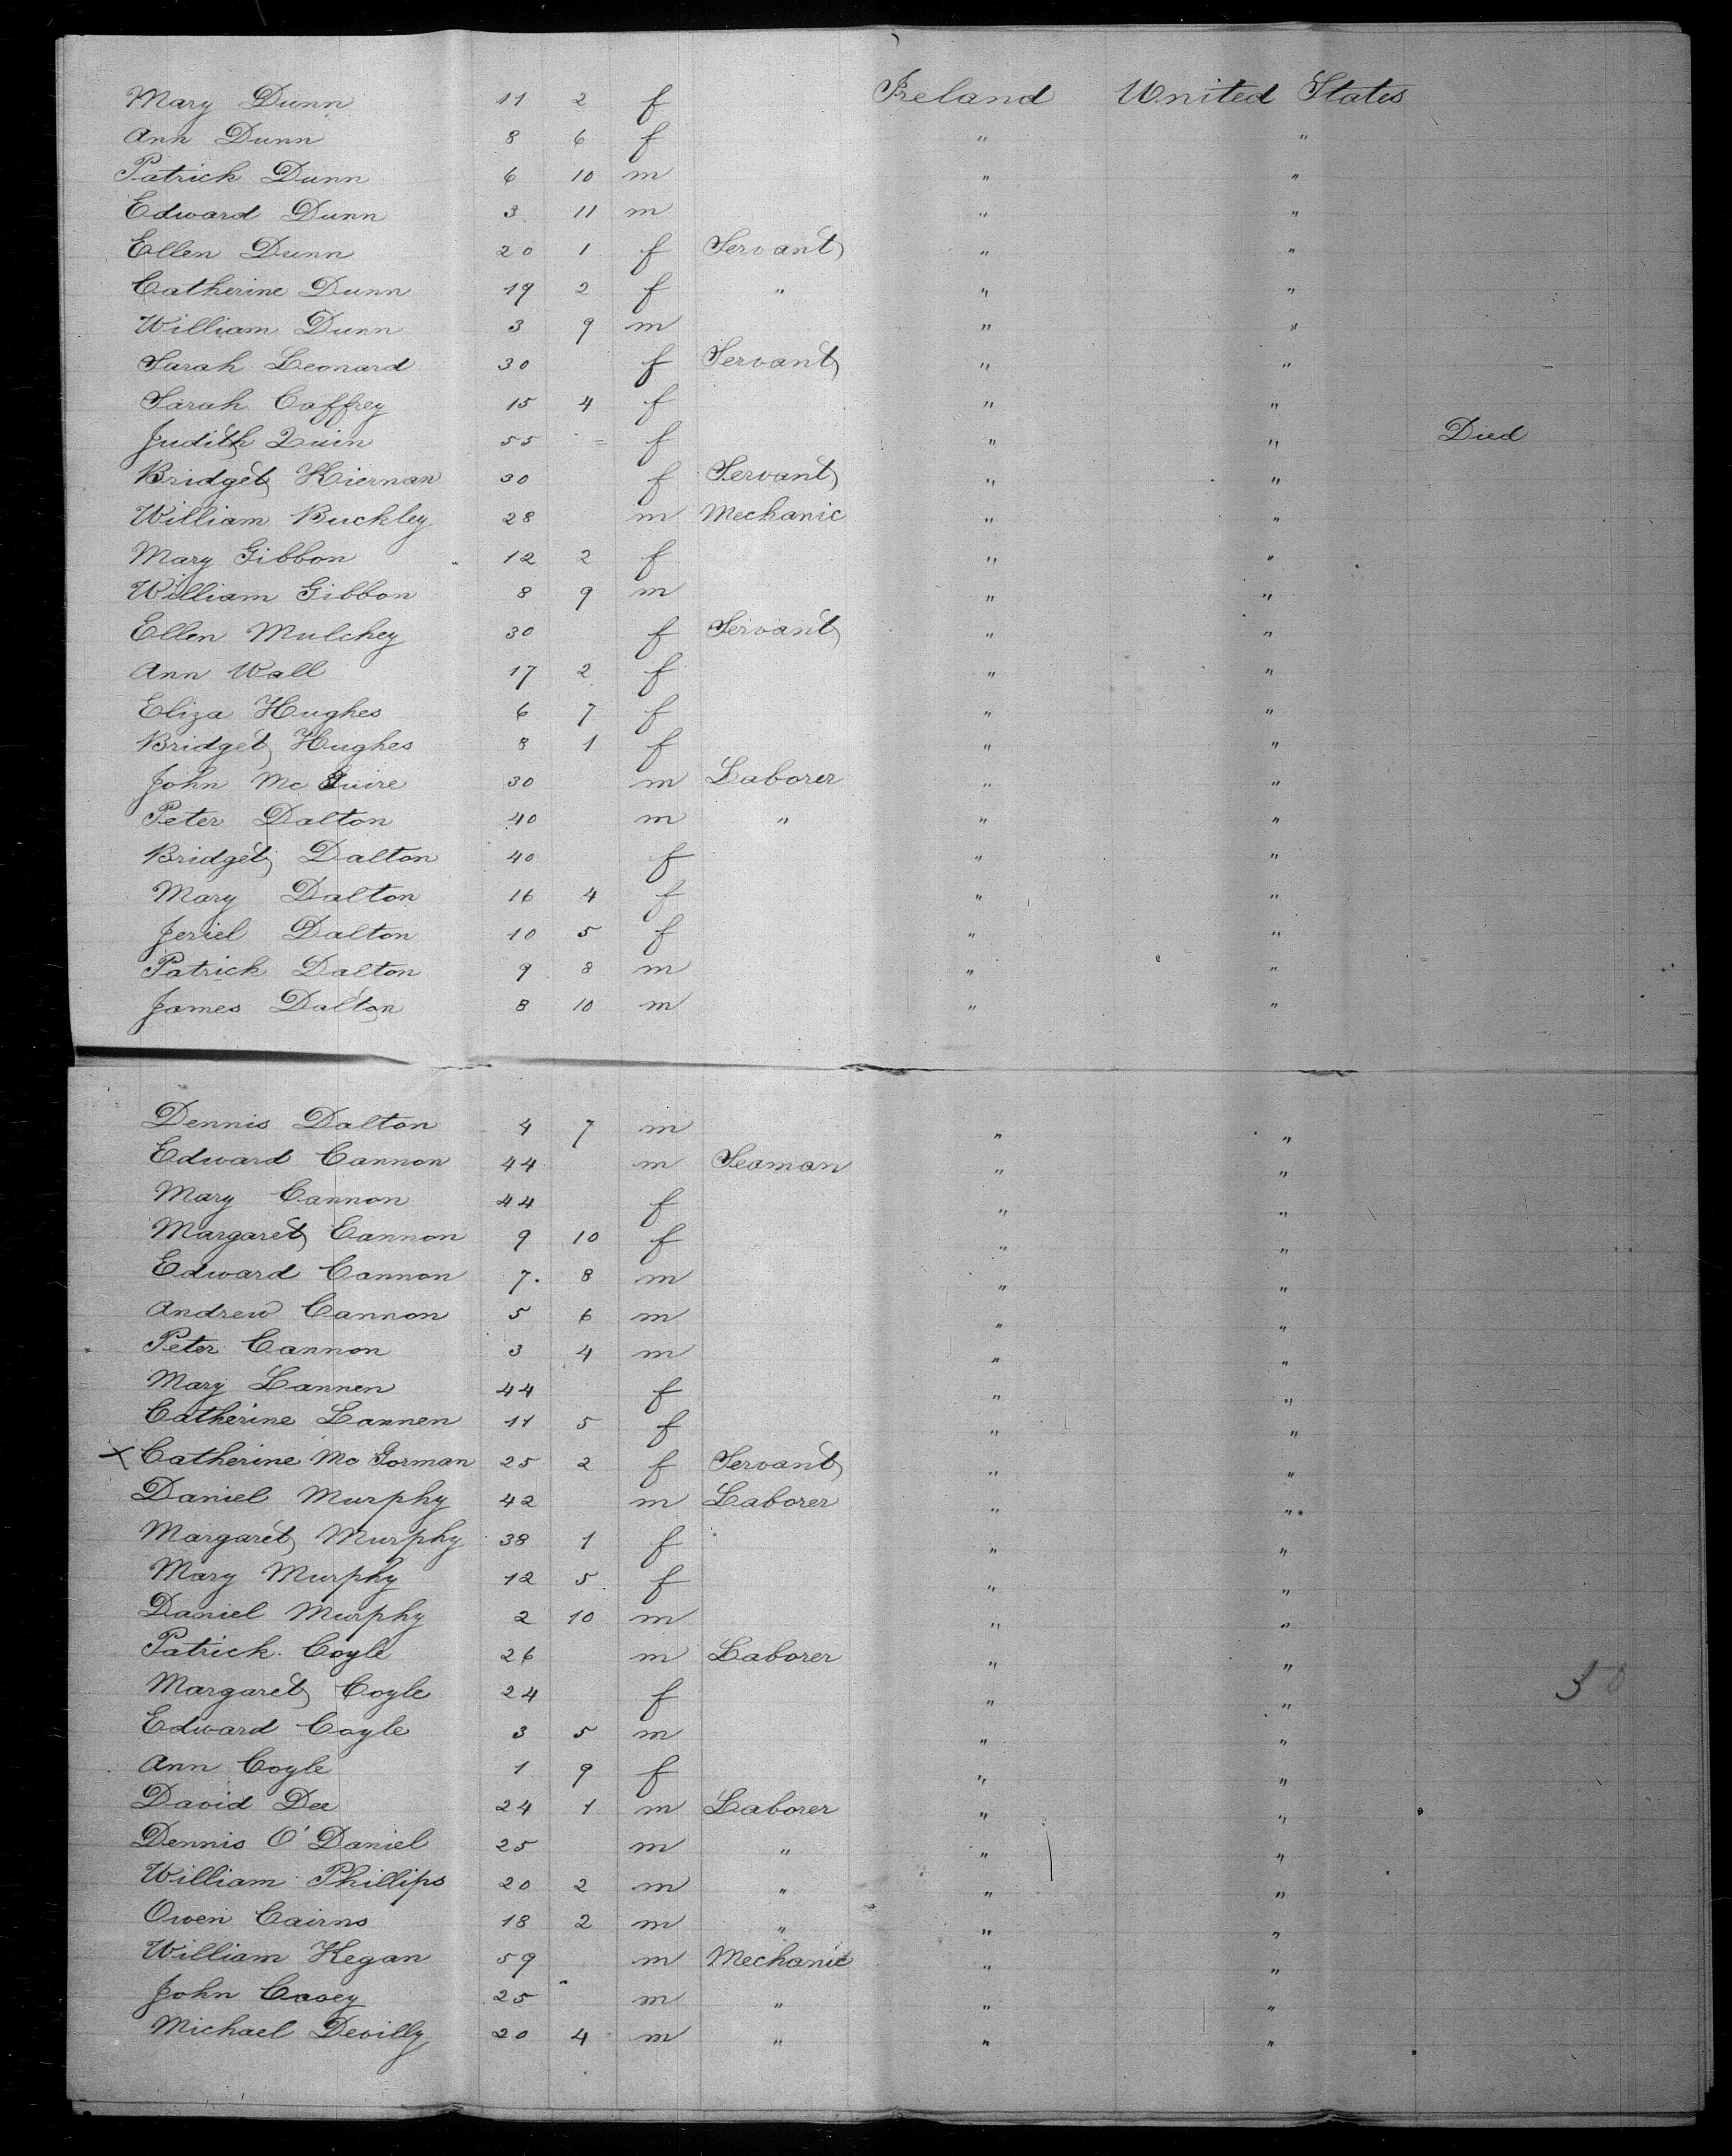 Mary Dunn 11 2 f Ireland United States
Ann Dunn 8 6 f " "
Patrick Dunn 6 10 m " "
Edward Dunn 3 11 m " "
Ellen Dunn 20 1 f Servant " "
Catherine Dunn 19 2 f " " "
William Dunn 3 9 m " "
Sarah Leonard 30 f Servant " "
Sarah Caffrey 15 4 f " "
Judith Quin 55 = f " " Died
Bridget Kiernan 30 f Servant " "
William Buckley 28 m Mechanic " "
Mary Gibbon 12 2 f " "
William Gibbon 8 9 m " "
Ellen Mulchey 30 f Servant " "
Ann Wall 17 2 f " "
Eliza Hughes 6 7 f " "
Bridget Hughes 8 1 f " "
John Mc Guire 30 m Laborer " "
Peter Dalton 40 m " " "
Bridget Dalton 40 f " "
Mary Dalton 16 4 f " "
Jeriel Dalton 10 5 f " "
Patrick Dalton 9 8 m " "
James Dalton 8 10 m " "
Dennis Dalton 4 7 m " "
Edward Cannon 44 m Seaman " "
Mary Cannon 44 f " "
Margaret Cannon 9 10 f " "
Edward Cannon 7 8 m " "
Andrew Cannon 5 6 m " "
Peter Cannon 3 4 m " "
Mary Lannen 44 f " "
Catherine Lannen 11 5 f " "
X Catherine Mc Gorman 25 2 f Servant " "
Daniel Murphy 42 m Laborer " "
Margaret Murphy 38 1 f " "
Mary Murphy 12 5 f " "
Daniel Murphy 2 10 m " "
Patrick Coyle 26 m Laborer " "
Margaret Coyle 24 f " "
Edward Coyle 3 5 m " "
Ann Coyle 1 9 f " "
David Dee 24 1 m Laborer " "
Dennis O'Daniel 25 m " " "
William Phillips 20 2 m " " "
Owen Cairns 18 2 m " " "
William Kegan 59 m Mechanic " "
John Casey 25 m " " "
Michael Devilly 20 4 m " " "